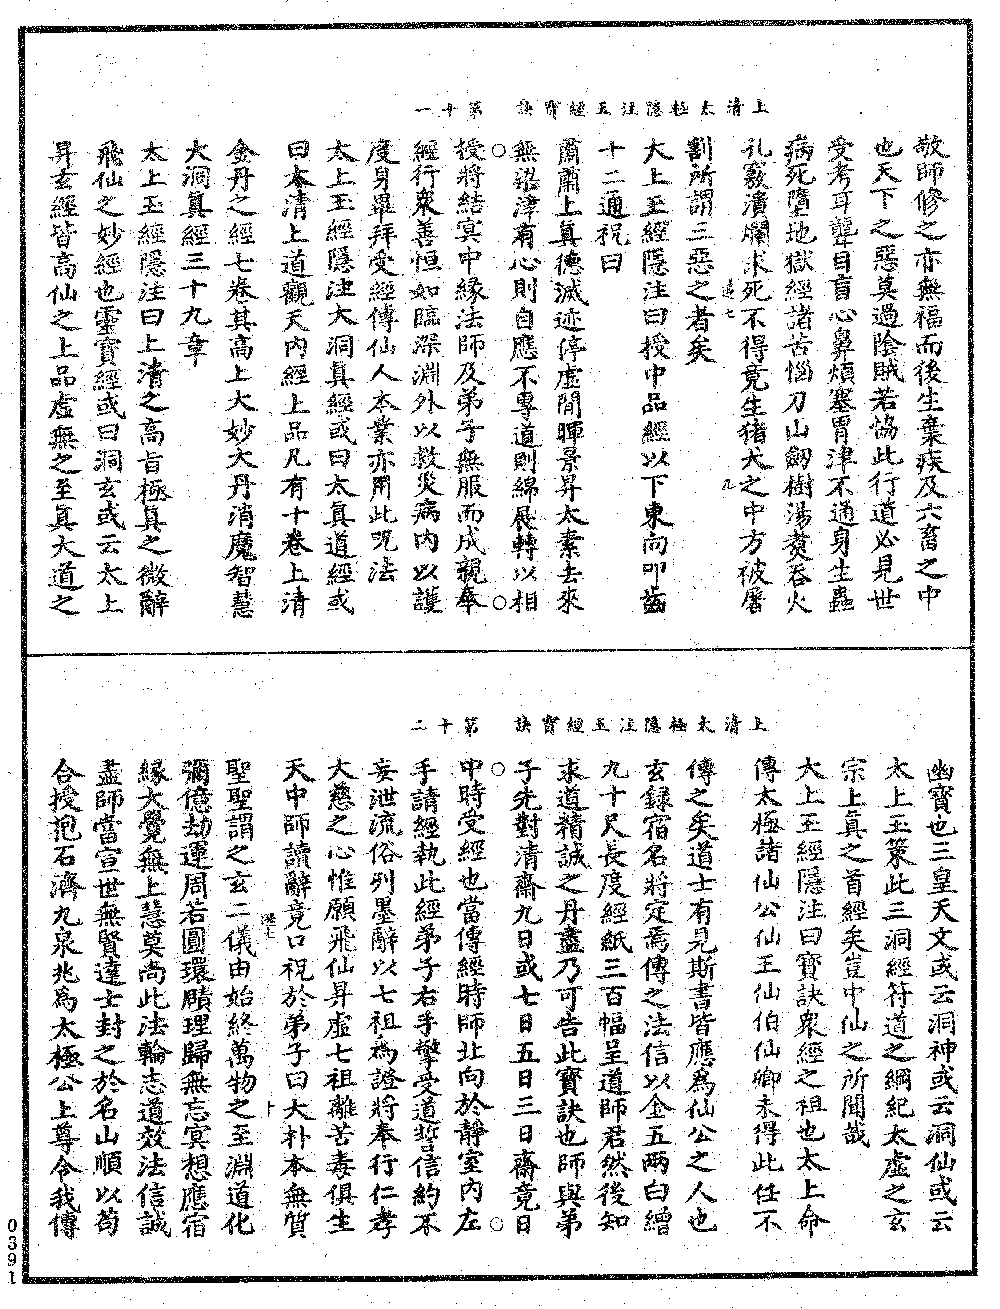 上清太極隱注玉經寶訣　第十一
敬師修之亦無福而後生棄疾及六畜之中
也天下之惡莫過陰賊若恊此行道必見世
受考耳聾目盲心鼻煩塞胃津不通身生蟲
病死墮地獄經諸苦惱刀山劒樹湯煑吞火
孔竅潰爛求死不得竟生猪犬之中方被屠
割所謂三惡之者矣
太上玉經隱注曰授中品經以下東向叩齒
十二通祝曰
肅肅上真德滅迹停虛閒暉景昇太素去來
無梁津有心則自應不專道則綿展轉以相
授將結冥中緣法師及弟子無服而成親奉
經行衆善恒如臨深淵外以救災病內以護
度身畢拜受經傳仙人本業亦用此呪法
太上玉經隱注大洞真經或曰太真道經或
曰太清上道觀天內經上品凡有十卷上清
金丹之經七卷其高上大妙大丹消魔智慧
大洞真經三十九章
太上玉經隱注曰上清之高旨極真之微辭
飛仙之妙經也靈寶經或曰洞玄或云太上
昇玄經皆高仙之上品虛無之至真大道之
上清太極隱注玉經寶訣　第十二
幽寶也三皇天文或云洞神或云洞仙或云
太上玉策此三洞經符道之綱紀太虛之玄
宗上真之首經矣豈中仙之所聞哉
太上玉經隱注曰寶訣衆經之祖也太上命
傳太極諸仙公仙王仙伯仙卿未得此任不
傳之矣道士有見斯書皆應爲仙公之人也
玄録宿名將定焉傳之法信以金五兩白繒
九十尺長度經紙三百幅呈道師君然後知
求道精誠之丹盡乃可告此寶訣也師與弟
子先對清齋九日或七日五日三日齋竟日
中時受經也當傳經時師北向於靜室內左
手請經執此經弟子右手擎受道誓信約不
妄泄流俗列墨辭以七祖爲證將奉行仁孝
大慈之心惟願飛仙昇虛七祖離苦毒俱生
天中師讀辭竟口祝於弟子曰大朴本無質
聖聖謂之玄二儀由始終萬物之至淵道化
彌億劫運周若圓環賾理歸無忘冥想應宿
緣大覺無上慧莫尚此法輪志道效法信誠
盡師當宣世無賢達士封之於名山順以苟
合授抱石濟九泉兆爲太極公上尊令我傳
0391